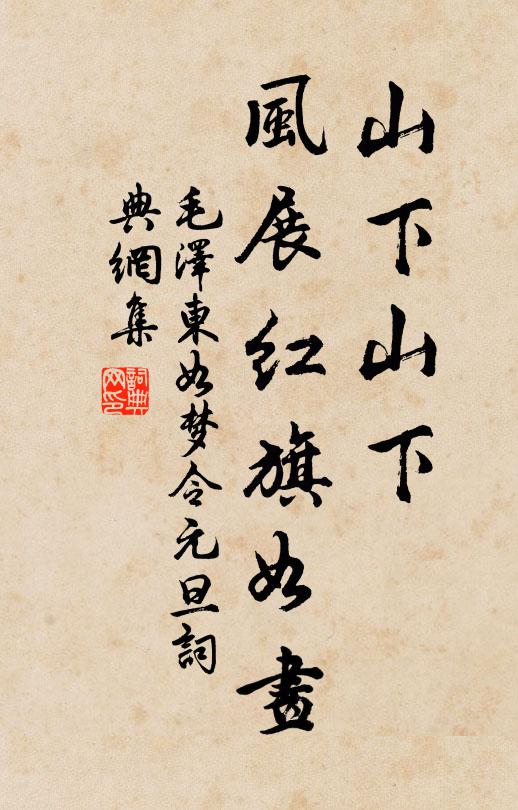 山下山下
風展红旗如畫
毛澤東如梦令元旦詞
典網集
詞典网印